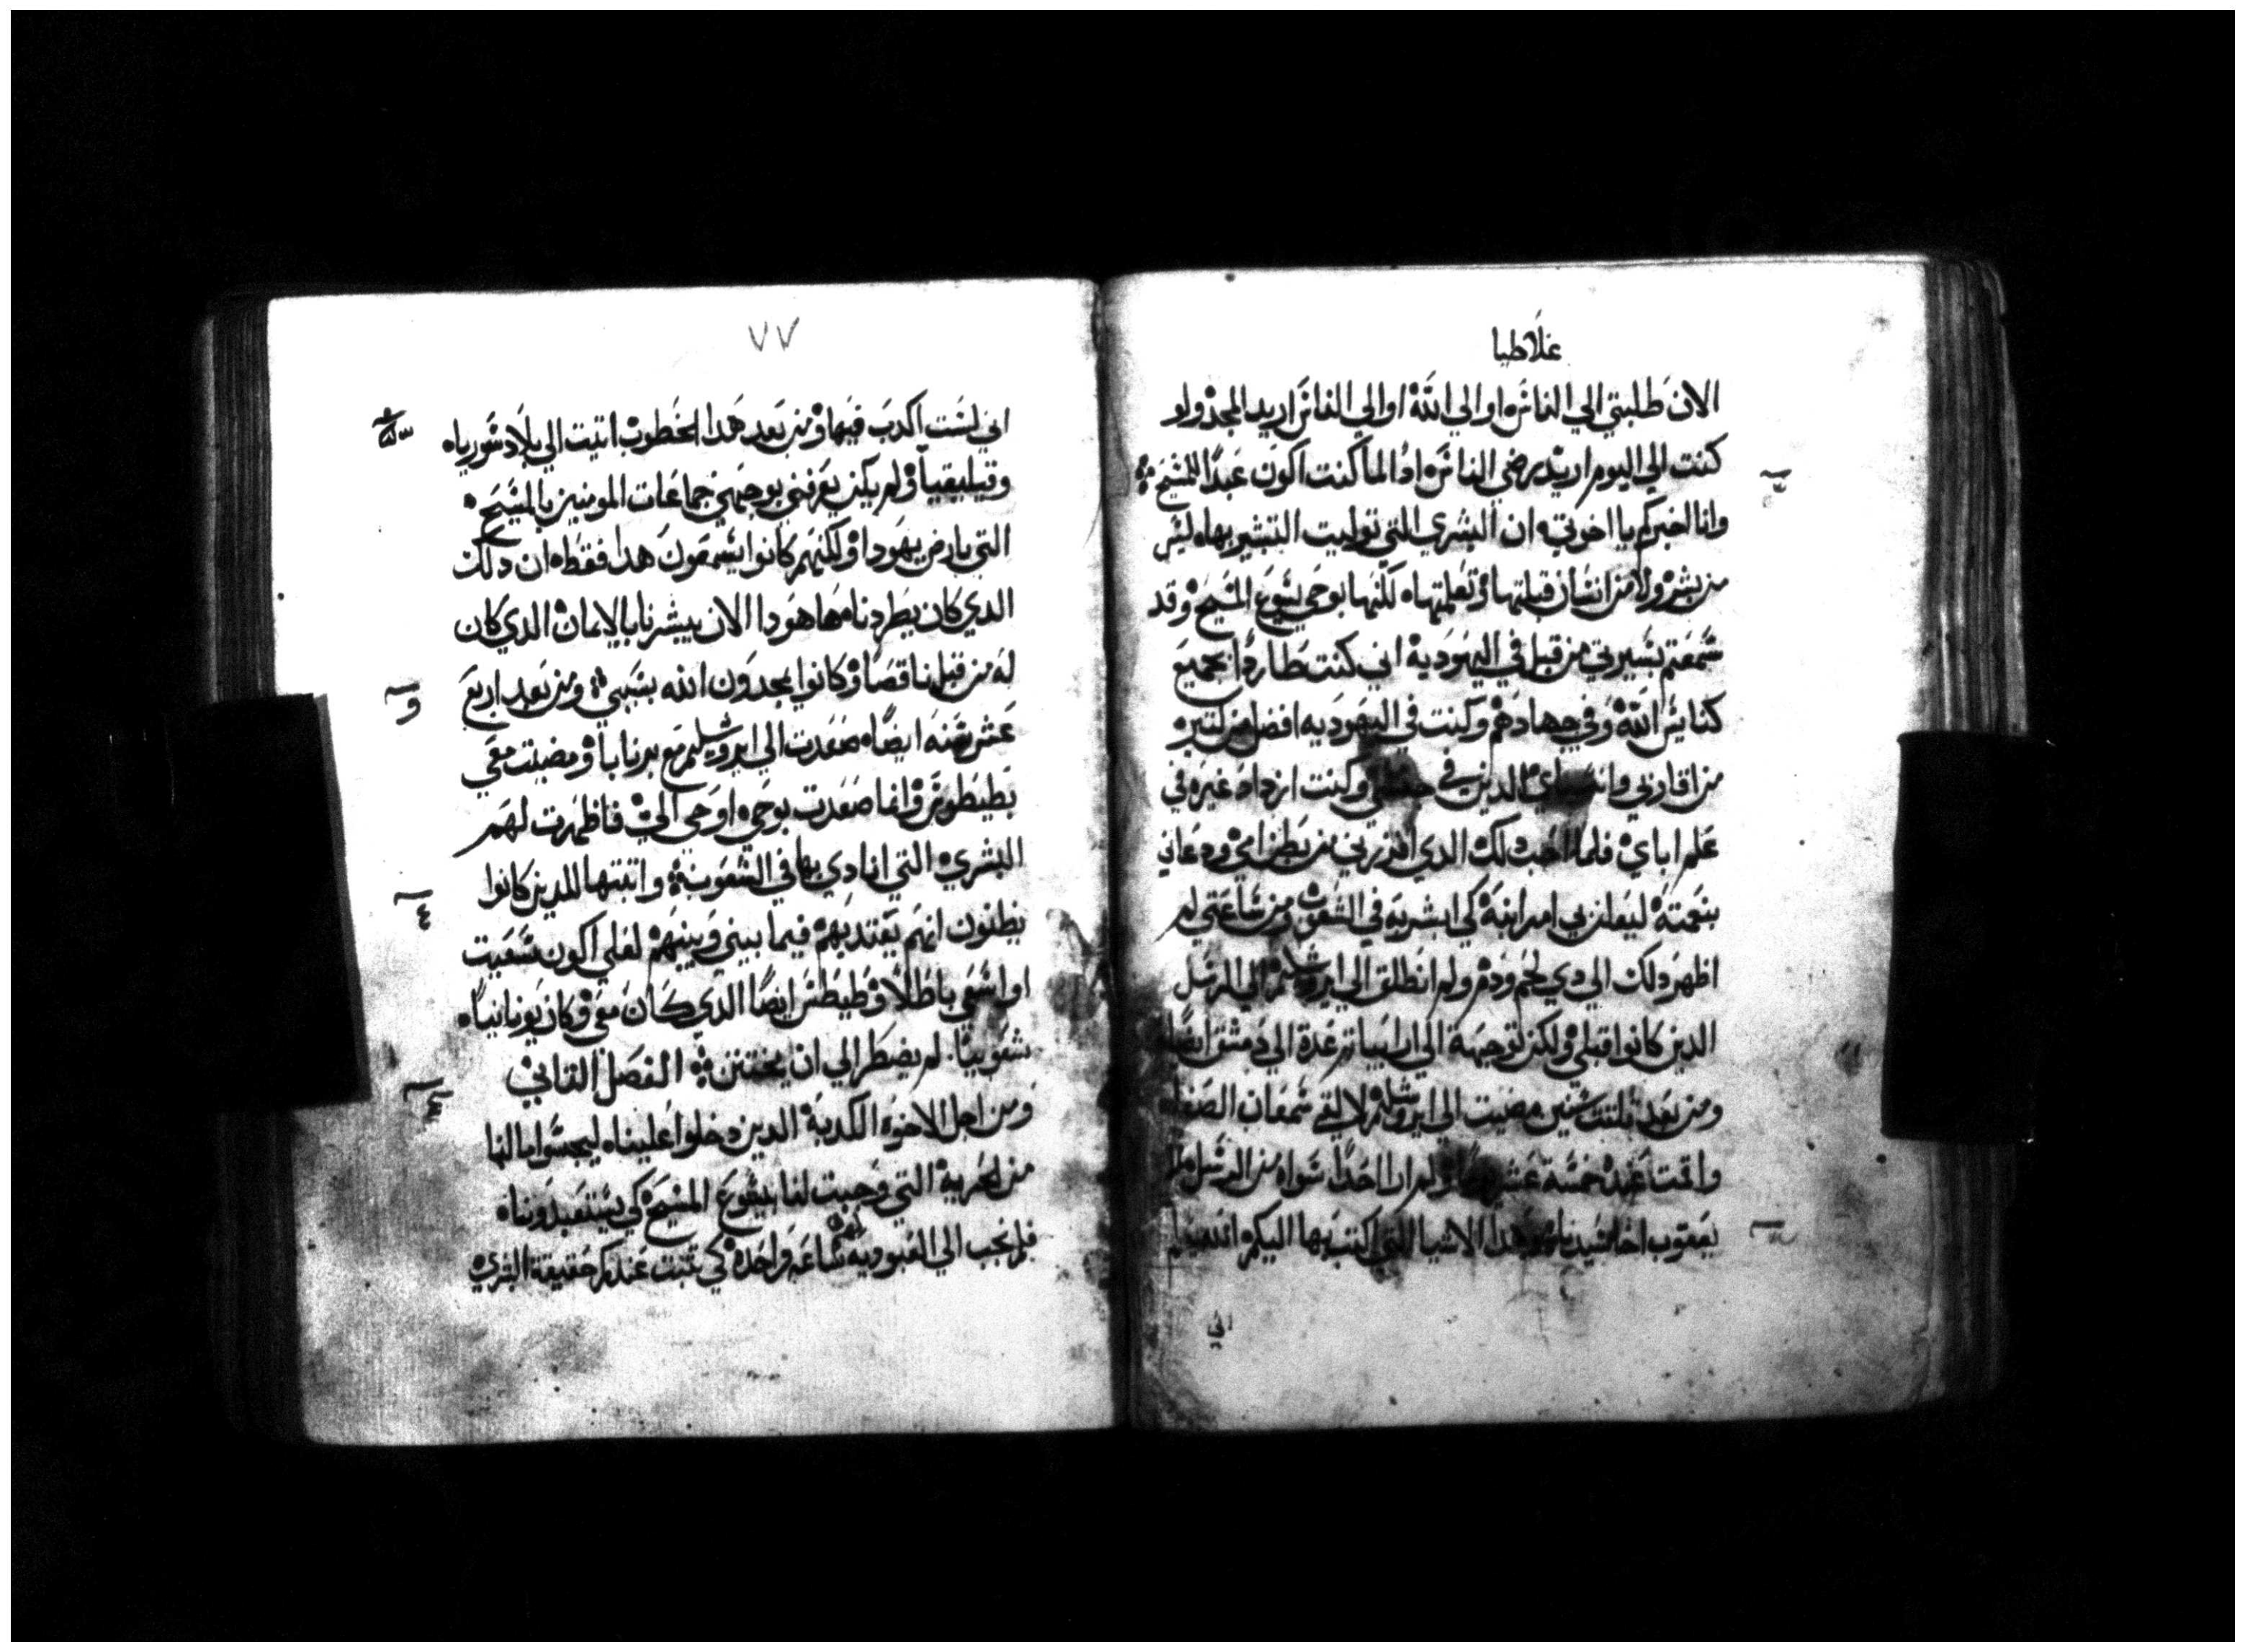 غلاطيا
الان طلبتي الي الناس او الي الله او الي الناس اريد المجد ولو
كنت الي اليوم اريد برضي الناس ادا لما كنت اكون عبدا للمسيح
وانا اخبركم يا اخوتي ان البشري التي توليت التبشير بها ليس
من بشر ولا من انسان قبلتها وتعلمتها لكنها بوحي يسوع المسيح وقد
سمعتم بسيرتي من قبل في اليهودية اني كنت طاردا بجميع
كنايس الله وفي جهادهم وكنت في اليهوديه افضل من كتير
من اقاربي الدين في وكنت ازداد غيره في
علم اباي فلما احب دلك الدي افرزني من بطن امي ودعاني
بنعمته ليعلن بي امر ابنه كي ابشر به في الشعوب ومن ساعتي لم
اظهر دلك الي دي لحم ودم ولم انطلق الي ايروشليم الي الرسل
الدين كانوا قبلي ولكن توجهة الي ارابيا تم عدة الي دمشق ايضا
ومن بعد تلتت سنين مضيت الي ايروشليم لالقي سمعان الصفا
واقمت عنده خمسة عشر ولم ارا احدا سواه من الرسل
يعقوب اخا سيدنا وهدا الاشيا التي اكتب بها اليكم
اني
٧٧
اني لست اكدب فيها ومن بعد هدا الخطوب اتيت الي بلاد سوريا
وقيليقيا ولم يكن يعرفني بوجهي جماعات المومنين بالمسيح
التي بارض يهودا ولكنهم كانوا يسمعون هدا فقط ان دلك
الدي كان يطردنا ها هودا الان يبشرنا بالايمان الدي كان
له من قبل ناقصا وكانوا يمجدون الله بسببي ومن بعد اربع
عشر سنه ايضا صعدت الي ايروشليم مع برنابا ومضيت معي
بطيطوس وانما صعدت بوحي اوحي الي فاظهرت لهم
البشري التي انادي بها في الشعوب واتبتها للدين كانوا
يظنون انهم يقتد بهم فيما بيني وبينهم لعلي اكون سعيت
او اسعي باطلا وطيطس ايضا الدي كان معي وكان يونانيا
شعوبيا لم يضطر الي ان يختتن الفصل التاني
ومن اجل الاخوه الكدبة الدين دخلوا علينا ليجسوا مالنا
من الحرية التي وجبت لنا بيسوع المسيح كي يستعبدوننا
فلم نجب الي العبوديه ساعه واحدة كي تتبت عندكم حقيقة البشري